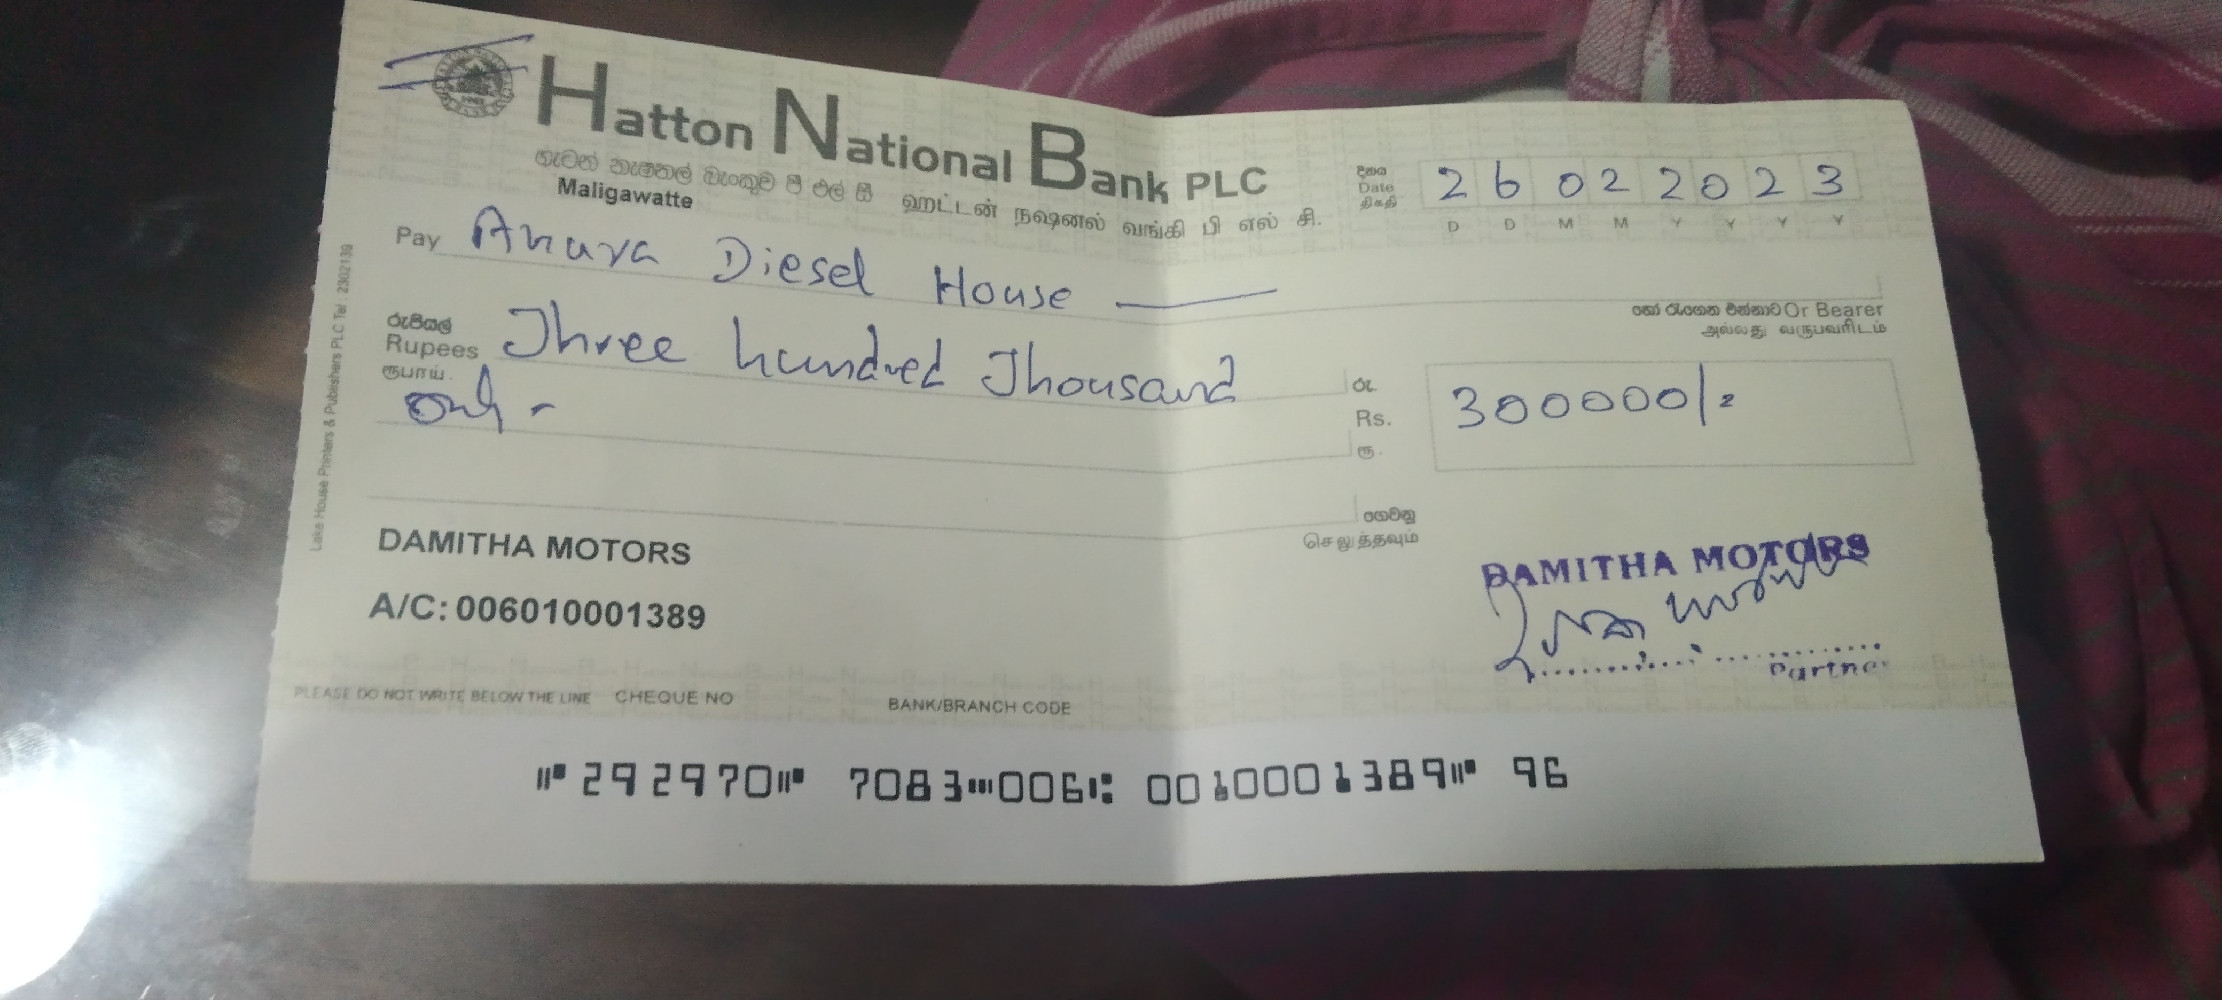 Hatton National Bank PLC
හැටන් නැෂනල් බැංකුව පී එල් සී ஹட்டன் நஷனல் வங்கி பி எல் சி.
Maligawatte
දිනය
Date
திகதி
2 6 0 2 2 0 2 3
D D M M Y Y Y Y
Pay Anura Diesel House
හෝ රැගෙන එන්නාට Or Bearer
அல்லது வருபவரிடம்
රුපියල්
Rupees Three hundred Thousand
ரூபாய்
Only -
රු.
Rs. 300000/=
ரூ.
ගෙවනු
செலுத்தவும்
DAMITHA MOTORS
A/C: 006010001389
DAMITHA MOTORS
Partner
Lake House Printers & Publishers PLC Tel : 2302139
PLEASE DO NOT WRITE BELOW THE LINE CHEQUE NO BANK/BRANCH CODE
⑈292970⑈ 7083⑉006⑆ 0010001389⑈ 96